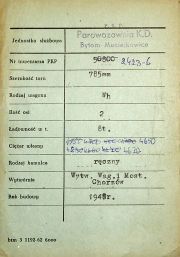 P.K.P.
Jednostka służbowa Parowozownia K.D.
Bytom Maciejkowice
Nr inwentarza PKP 50300 2423-6
Szerokość toru 785mm
Rodzaj wagonu Wh
Ilość osi 2
Ładowność w t. 8t.
Ciężar własny 4670
4670
Rodzaj hamulca ręczny
Wytwórnia Wytw. Wag.i Most.
Chorzów
Rok budowy 1948r.
btm 3 1192-62 6000